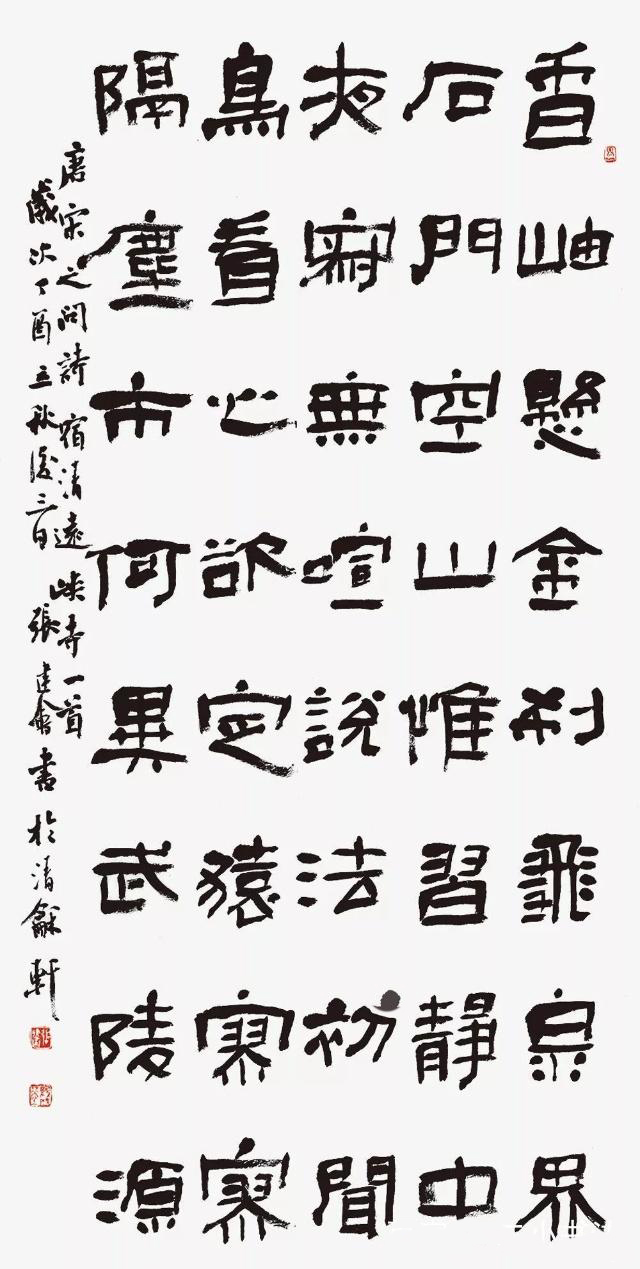 香岫懸金刹飛泉界
石門空山惟習靜中
夜寂無喧說法初聞
鳥看心欲定猿寥寥
隔塵市何異武陵源
唐宋之問詩宿清遠峽寺一首
歲次丁酉立秋後三日張建會書於清龢軒